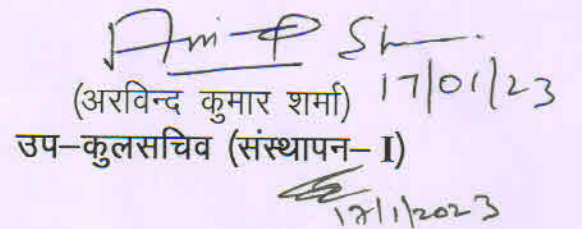 17/01/23
(अरविन्द कुमार शर्मा)
उप-कुलसचिव (संस्थापन- I)
17/1/2023